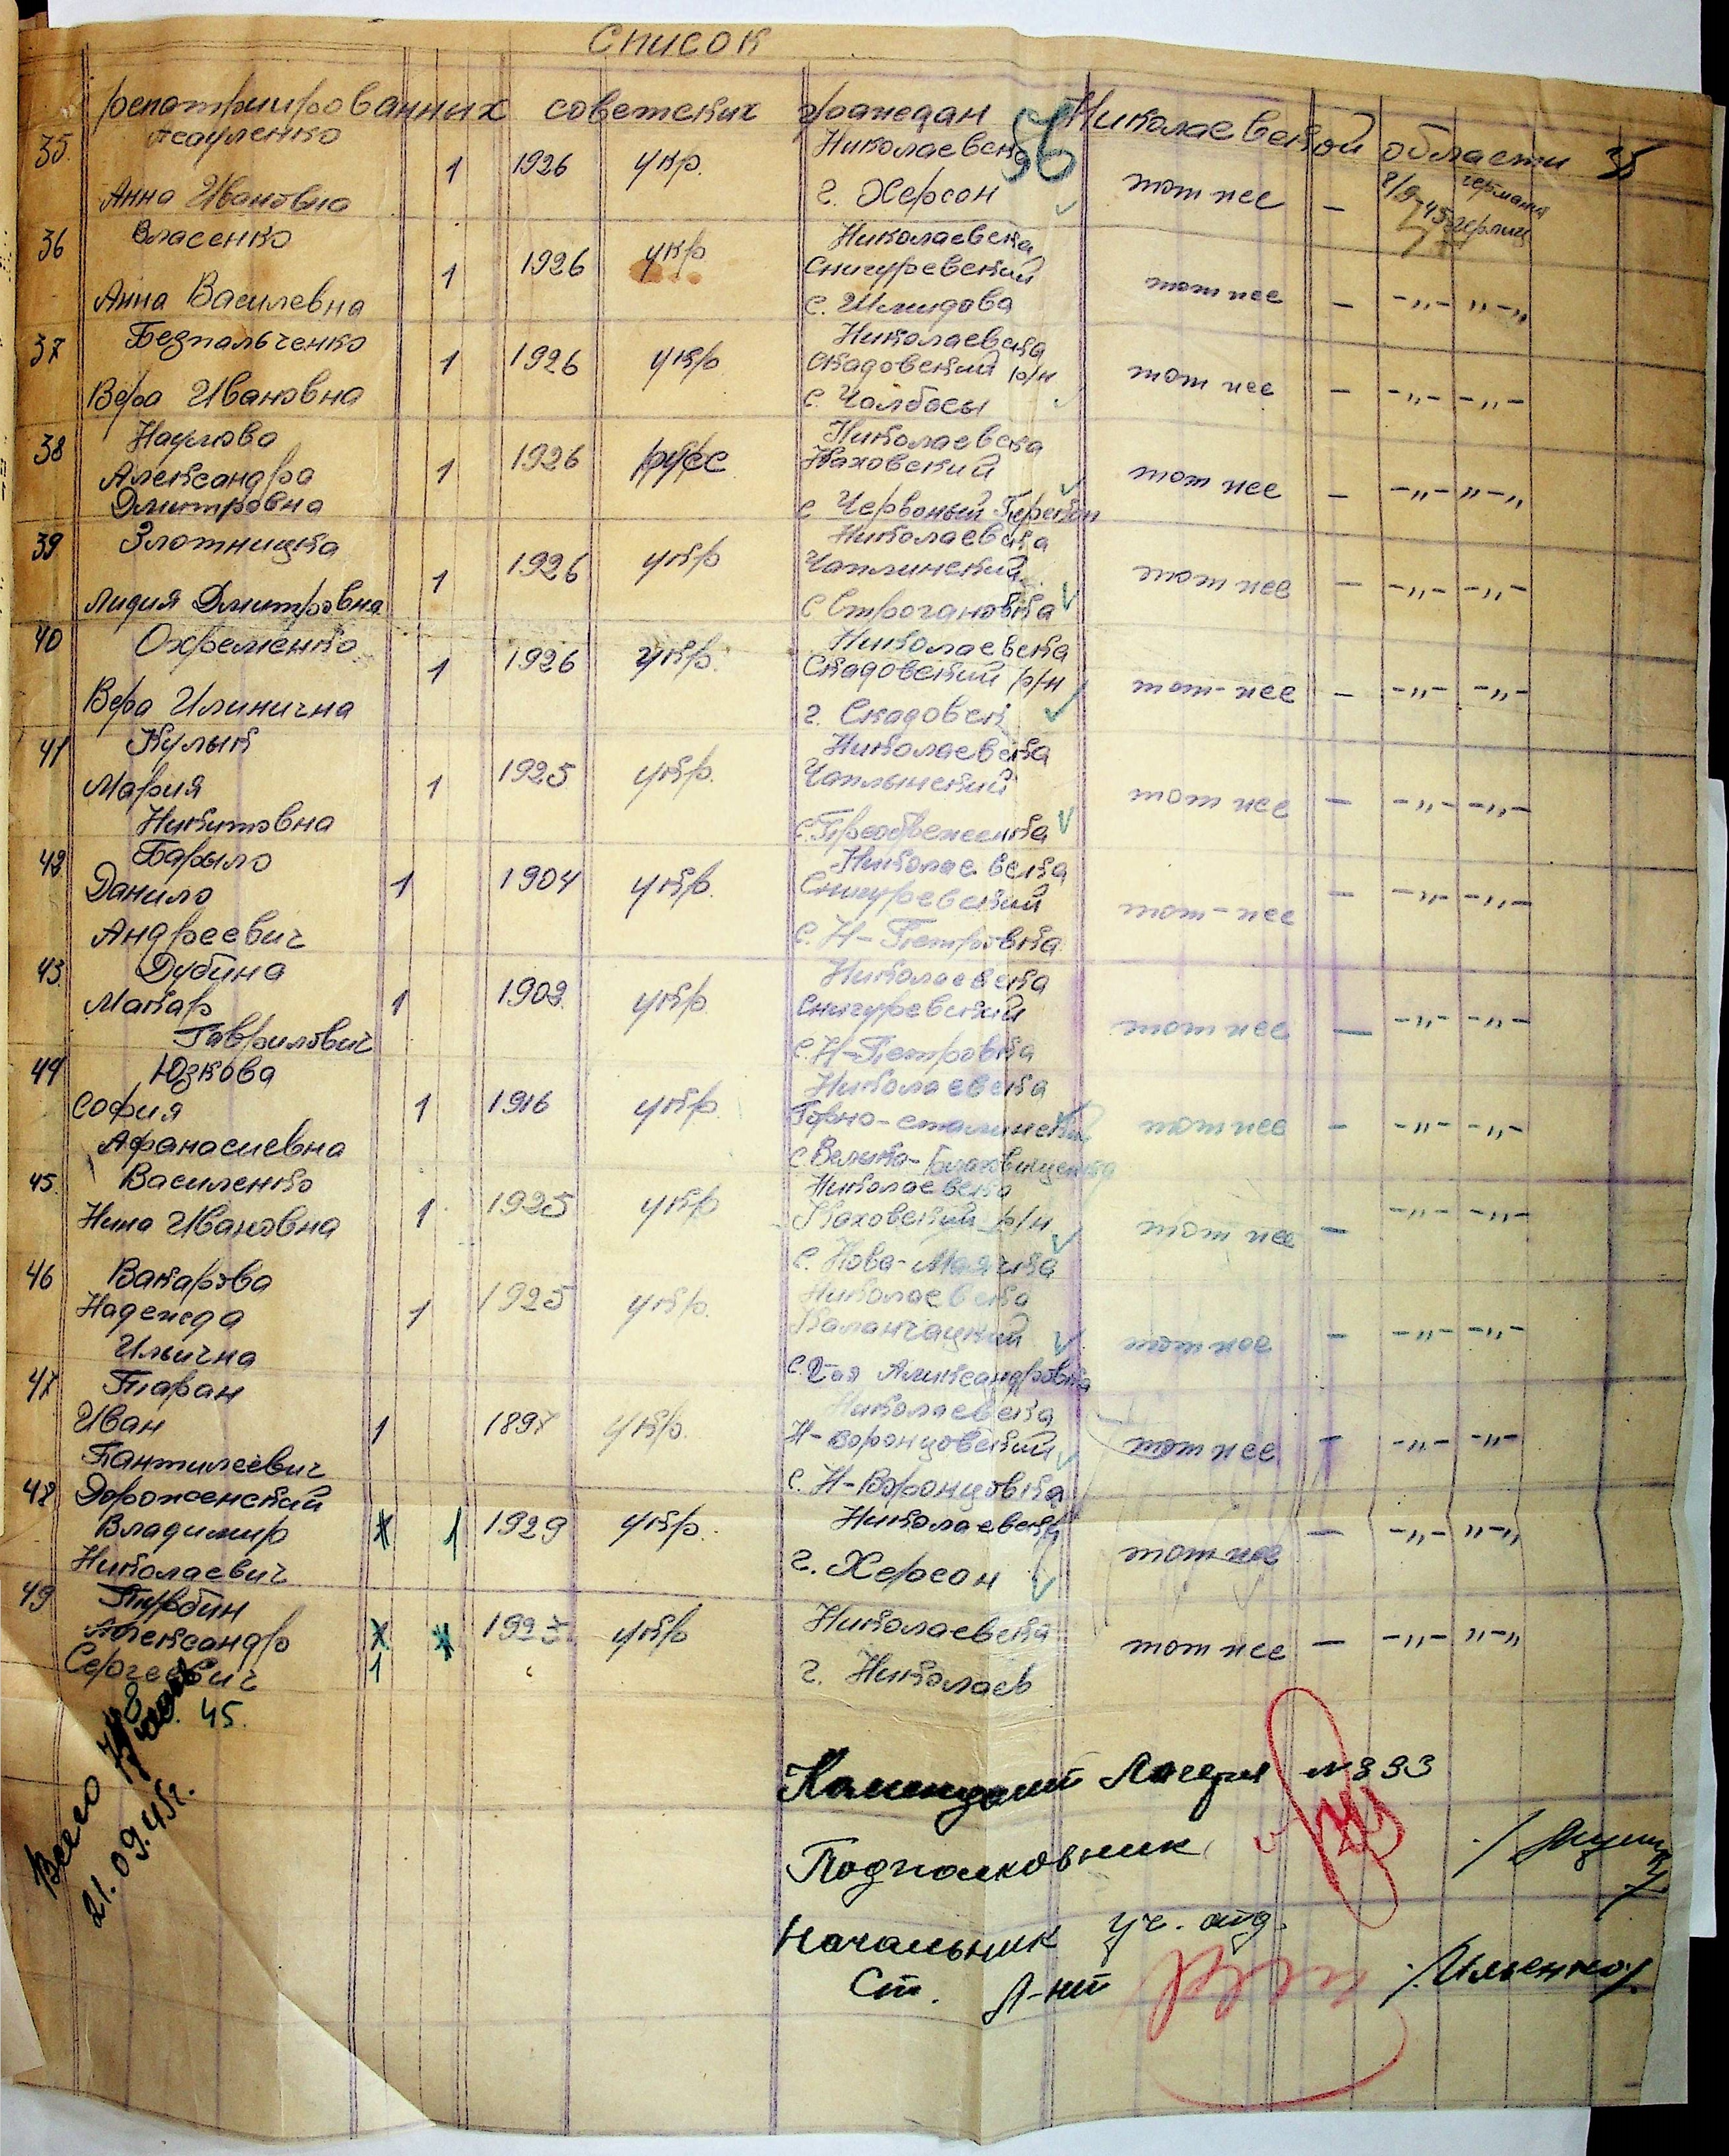 Список
репатриированних советских граждан Николаевской области
35. Асауленко Анна Ивановна 1 1926 укр. Николаевска г. Херсон тот же — 8/9 45 германия герлиц
56
35
36 Власенко Анна Василевна 1 1926 укр Николаевска Снигуревский с. тот же — -„- „-„
37 Безпальченко Вера Ивановна 1 1926 укр Николаевска Скадовский р/н с. Чалбасы тот же — -„- -„-
38 Наумова Александра Дмитровна 1 1926 русс Николаевска Каховский с Червоный тот же — -„- „-„
39 Злотницка Лидия Дмитровна 1 1926 укр Николаевска Чаплинский с Строгановка тот же — -„- -„-
40 Охременко Вера Илинична 1 1926 укр. Николаевска Скадовский р/н г. Скадовск тот-же — -„- -„-
41 Кулык Мария Никитовна 1 1925 укр. Николаевска Чаплынский с. тот же — -„- -„-
42. Барыло Данило Андреевич 1 1904 укр. Николаевска Снигуревский с. Н-Петровка тот-же — -„- -„-
43. Дубина Макар Гаврилович 1 1902. укр. Николаевска Снигуревский с. Н-Петровка тот же — -„- -„-
44 Юзкова София Афанасиевна 1 1916 укр. Николаевска Горно-сталинский с. Велика- тот же — -„- -„-
45. Василенко Нина Ивановна 1 1925 укр Николаевска Каховский р/н с. Нова-Маячка тот же — -„- -„-
46 Вакарова Надежда Ильична 1 1925 укр. Николаевска Каланчацкий с. 2-ая Александровка тот же — -„- -„-
47 Таран Иван Пантилеевич 1 1897 укр. Николаевска Н-Воронцовский с. Н-Воронцовка тот же — -„- -„-
48 Дороженский Владимир Николаевич 1 1929 укр. Николаевска г. Херсон тот же — -„- „-„
49 Турбин Александр Сергеевич 1 укр Николаевска г. Николаев тот же — -„- „-„
8. 45.
Всего
21.09.45г.
Комендант Лагеря №393
Подполковник
Начальник уч. отд.
Ст. Л-нт /Ильенко/.